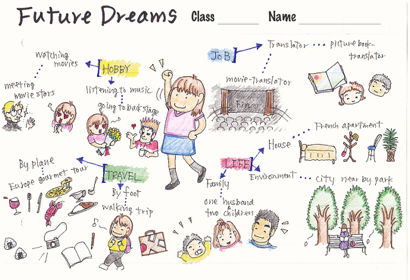 Future Dreams Class ____ Name ____
watching movies
HOBBY
meeting movie stars
listening to music
going to back stage
JOB
Translator
picture book translator
movie-translator
Fin
LIFE
House
French apartment
Environment
City near by park
Family
one husband
two children
TRAVEL
By plane
Europe gourmet tour
By foot
walking trip